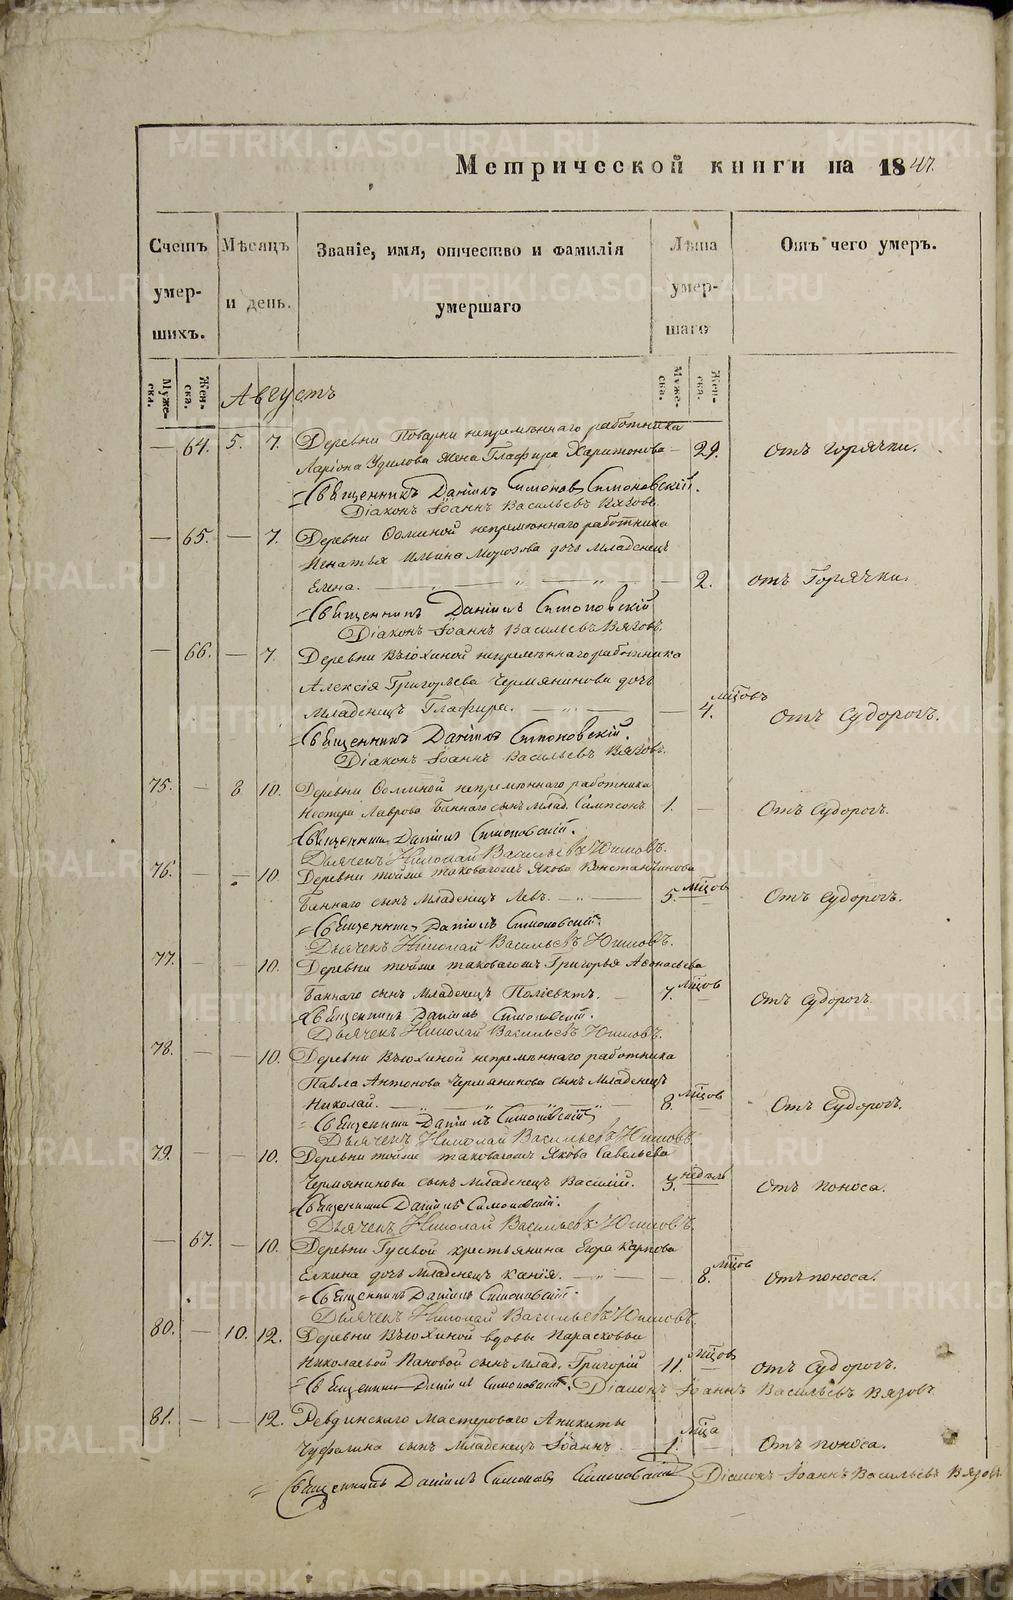 Метрической книги на 1847.
Счетъ умер-шихъ.
Мѣсяцъ и день.
Званіе, имя, отчество и фамилія умершаго
Лѣта умер-шаго
Отъ чего умеръ.
Муже-ска.
Жен-ска.
Муже-ска.
Жен-ска.
Августъ
— 64. 5. 7. Деревни Поварни непремѣннаго работника
Ларіона Удилова жена Глафира Харитонова — 29. Отъ горячки.
Священникъ Даніилъ Симоновъ Симоновскій.
Діаконъ Іоаннъ Васильевъ Вязовъ.
— 65. — 7. Деревни Осминой непремѣннаго работника
Игнатья Ильина Морозова дочь младенецъ
Елена. — 2. отъ Горячки.
Священникъ Даніилъ Симоновскій
Діаконъ Іоаннъ Васильевъ Вязовъ.
— 66. — 7. Деревни Вьюхиной непремѣннаго работника
Алексія Григорьева Чермянинова дочь
младенецъ Глафира. — 4. мѣсцовъ Отъ Судорогъ.
Священникъ Даніилъ Симоновскій.
Діаконъ Іоаннъ Васильевъ Вязовъ.
75. — 8 10. Деревни Осминой непремѣннаго работника
Нестера Лаврова Баннаго сынъ млад. Сампсонъ 1. — Отъ Судорогъ.
Священникъ Даніилъ Симоновскій.
Дьячекъ Николай Васильевъ Югшовъ.
76. — — 10. Деревни тойже таковагожъ Якова Константинова
Баннаго сынъ младенецъ Левъ. — 5. мѣсцовъ Отъ Судорогъ.
Священникъ Даніилъ Симоновскій.
Дьячекъ Николай Васильевъ Югшовъ.
77. — — 10. Деревни тойже таковагожъ Григорья Афонасьева
Баннаго сынъ младенецъ Поліевктъ. — 7. мѣсцов Отъ Судорогъ.
Священникъ Даніилъ Симоновскій.
Дьячекъ Николай Васильевъ Югшовъ.
78. — — 10. Деревни Вьюхиной непремѣннаго работника
Павла Антонова Чермянинова сынъ младенецъ
Николай. — 8. мѣсцов Отъ Судорогъ.
Священникъ Даніилъ Симоновскій
Дьячекъ Николай Васильевъ Югшовъ.
79. — — 10. Деревни тойже таковагожъ Якова Савельева
Чермянинова сынъ младенецъ Василій. 3. недѣль Отъ поноса.
Священникъ Даніилъ Симоновскій.
Дьячекъ Николай Васильевъ Югшовъ.
— 67. — 10. Деревни Гусевой крестьянина Егора Карпова
Елкина дочь младенецъ — 8. мѣсцов Отъ поноса.
Священникъ Даніилъ Симоновскій.
Дьячекъ Николай Васильевъ Югшовъ.
80. — 10. 12. Деревни Вьюхиной вдовы Парасковьи
Николаевой Пановой сынъ млад. Григорій 11. мѣсцовъ отъ Судорогъ.
Священникъ Даніилъ Симоновскій. Діаконъ Іоаннъ Васильевъ Вязовъ
81. — — 12. Ревдинскаго мастероваго Аникиты
сынъ младенецъ Іоаннъ — 1. мѣсца Отъ поноса.
Священникъ Даніилъ Симоновъ Симоновскій Діаконъ Іоаннъ Васильевъ Вязовъ
METRIKI.GASO-URAL.RU